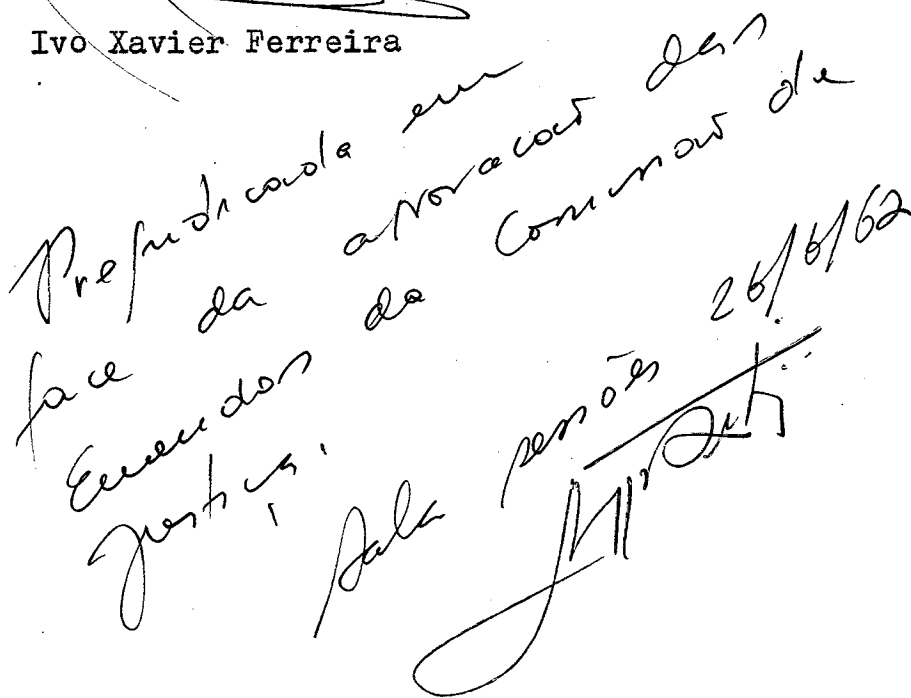 Ivo Xavier Ferreira
Prejudicada em
face da aprovação das
Emendas da Comissão de
Justiça.
Sala sessões 26/6/62